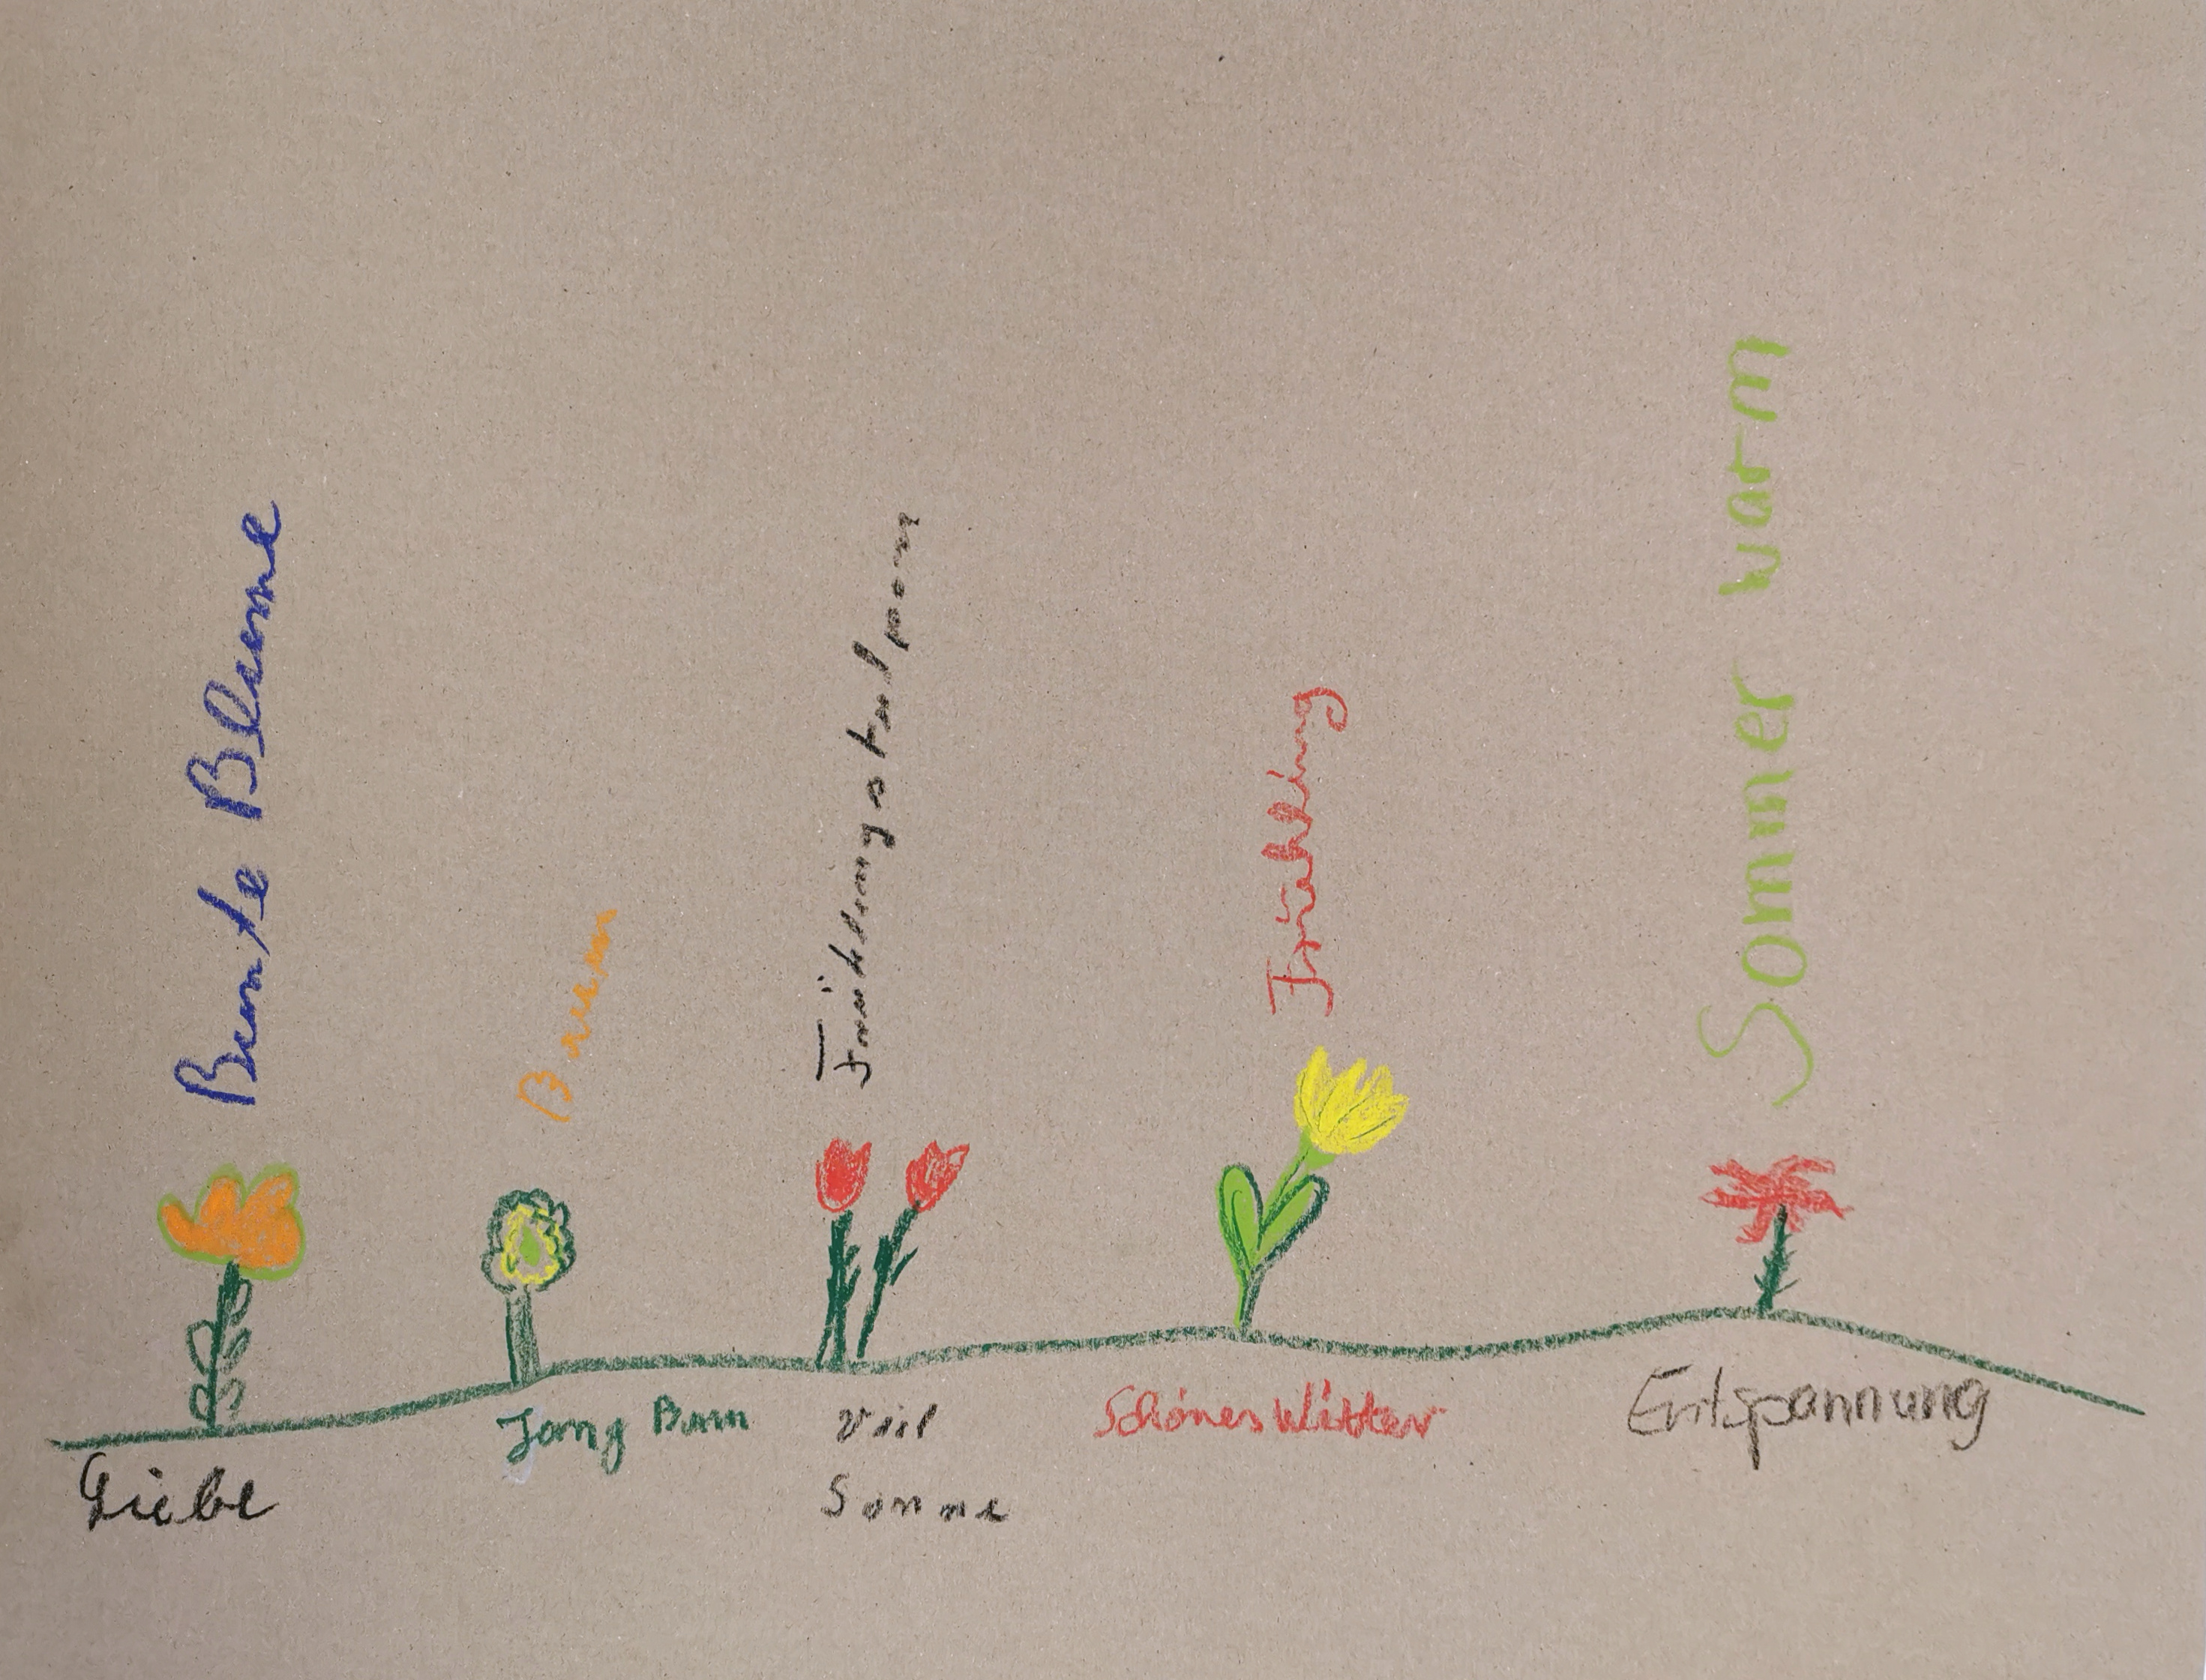 Bunte Blume
Braun
Frühlingstulpom
Frühling
Sommer warm
Liebe
Jong Bam
Viil
Sonne
Schönes Witter
Entspannung